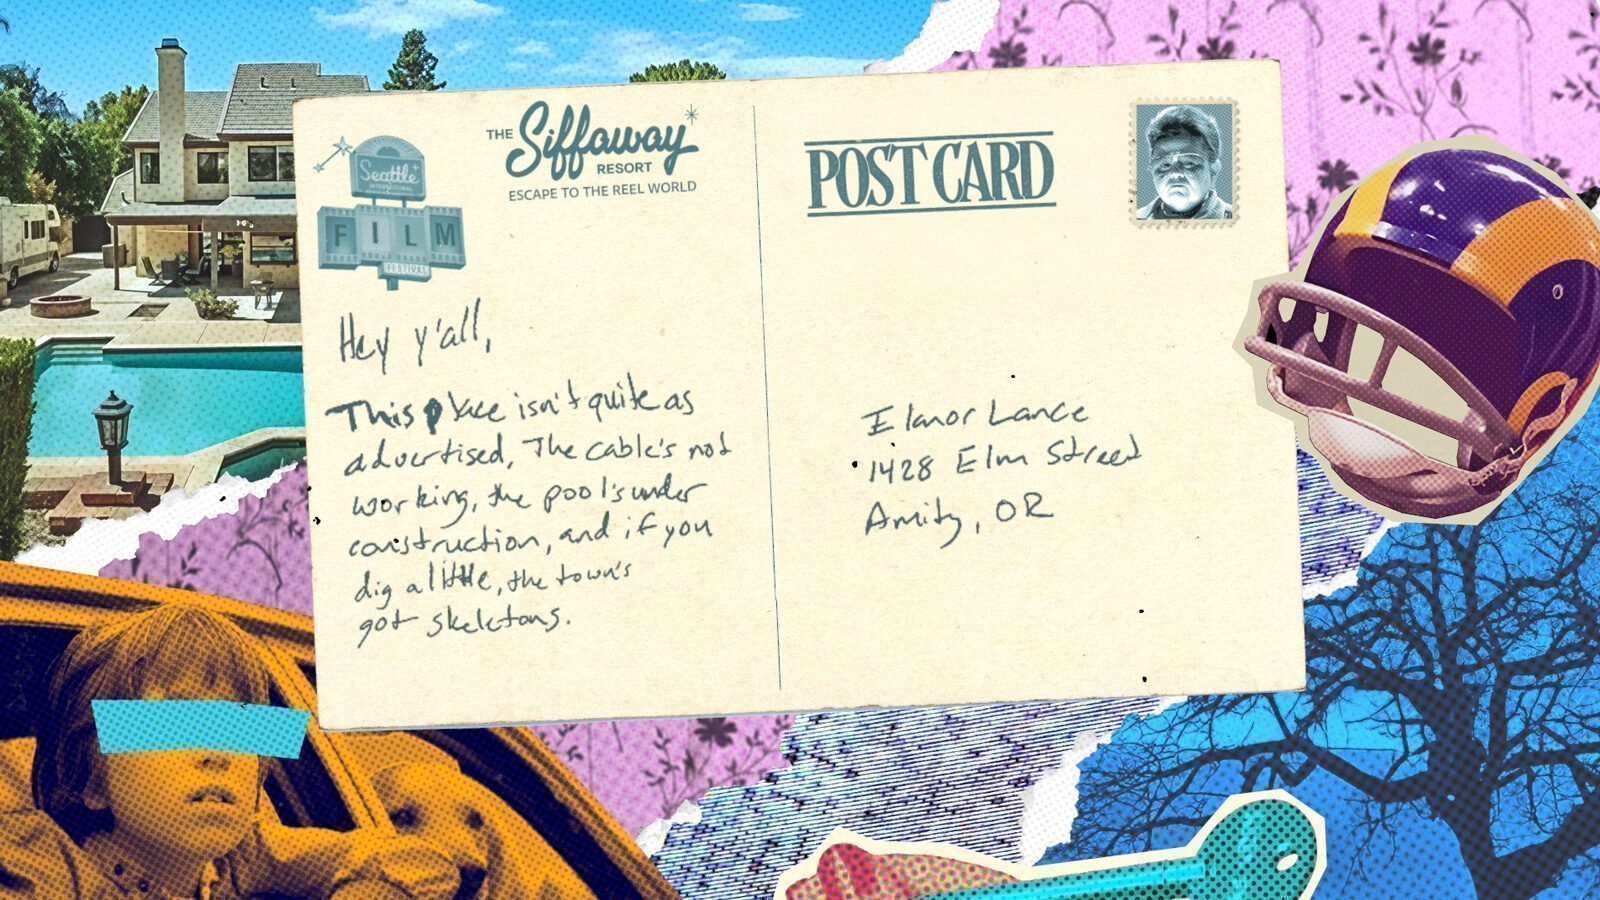 THE Siffaway RESORT
ESCAPE TO THE REEL WORLD
Seattle
INTERNATIONAL
FILM
FESTIVAL
Hey y'all,
This place isn't quite as
advertised, The cable's not
working, the pool's under
construction, and if you
dig a little, the town's
got skeletons.
POST CARD
Elanor Lance
1428 Elm Street
Amity, OR